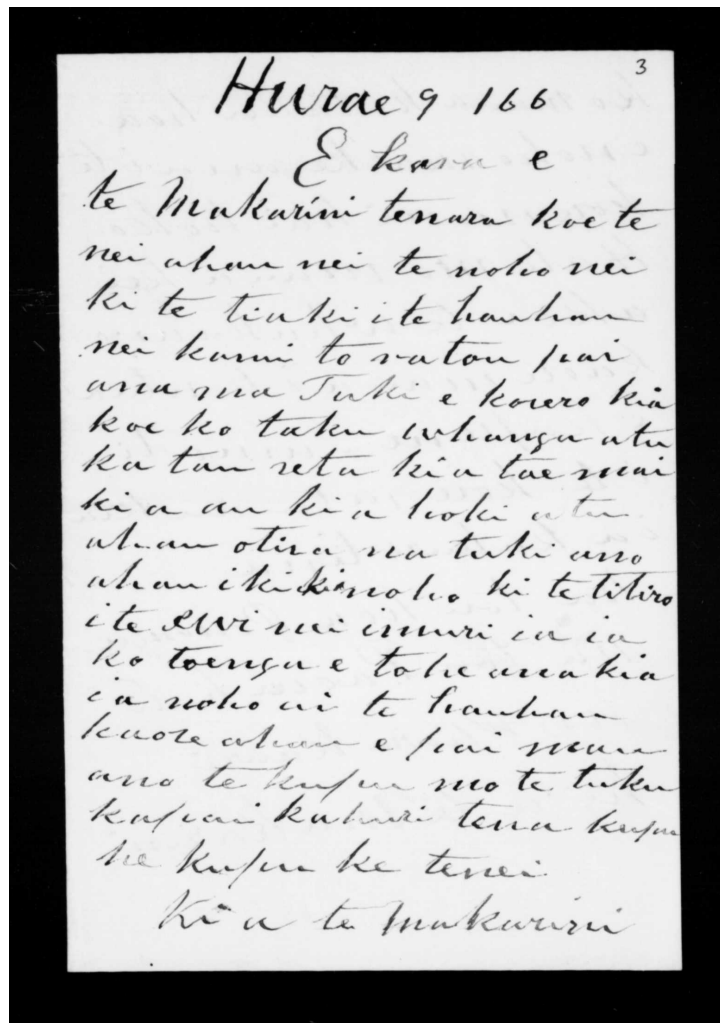 3
Hurae 9 166
E kara e
te Makarini tenara koe te
nei ahau nei te noho nei
ki te tiaki i te hauhau
nei kami to ratou pai
ana ma Tuki e korero kia
koe ko taku whanga atu
ka tau reta kia tae mai
kia au kia hoki atu
ahau otira na tuki ano
ahau i ki noho ki te titiro
i te ewi nei i muri ia ia
ko toenga e tohe ana kia
ia noho ai te hauhau
kaore ahau e pai mau
ano te kupu mo te tuku
kapai kahuri tena kupu
he kupu ke tenei
Ki a te Makarini